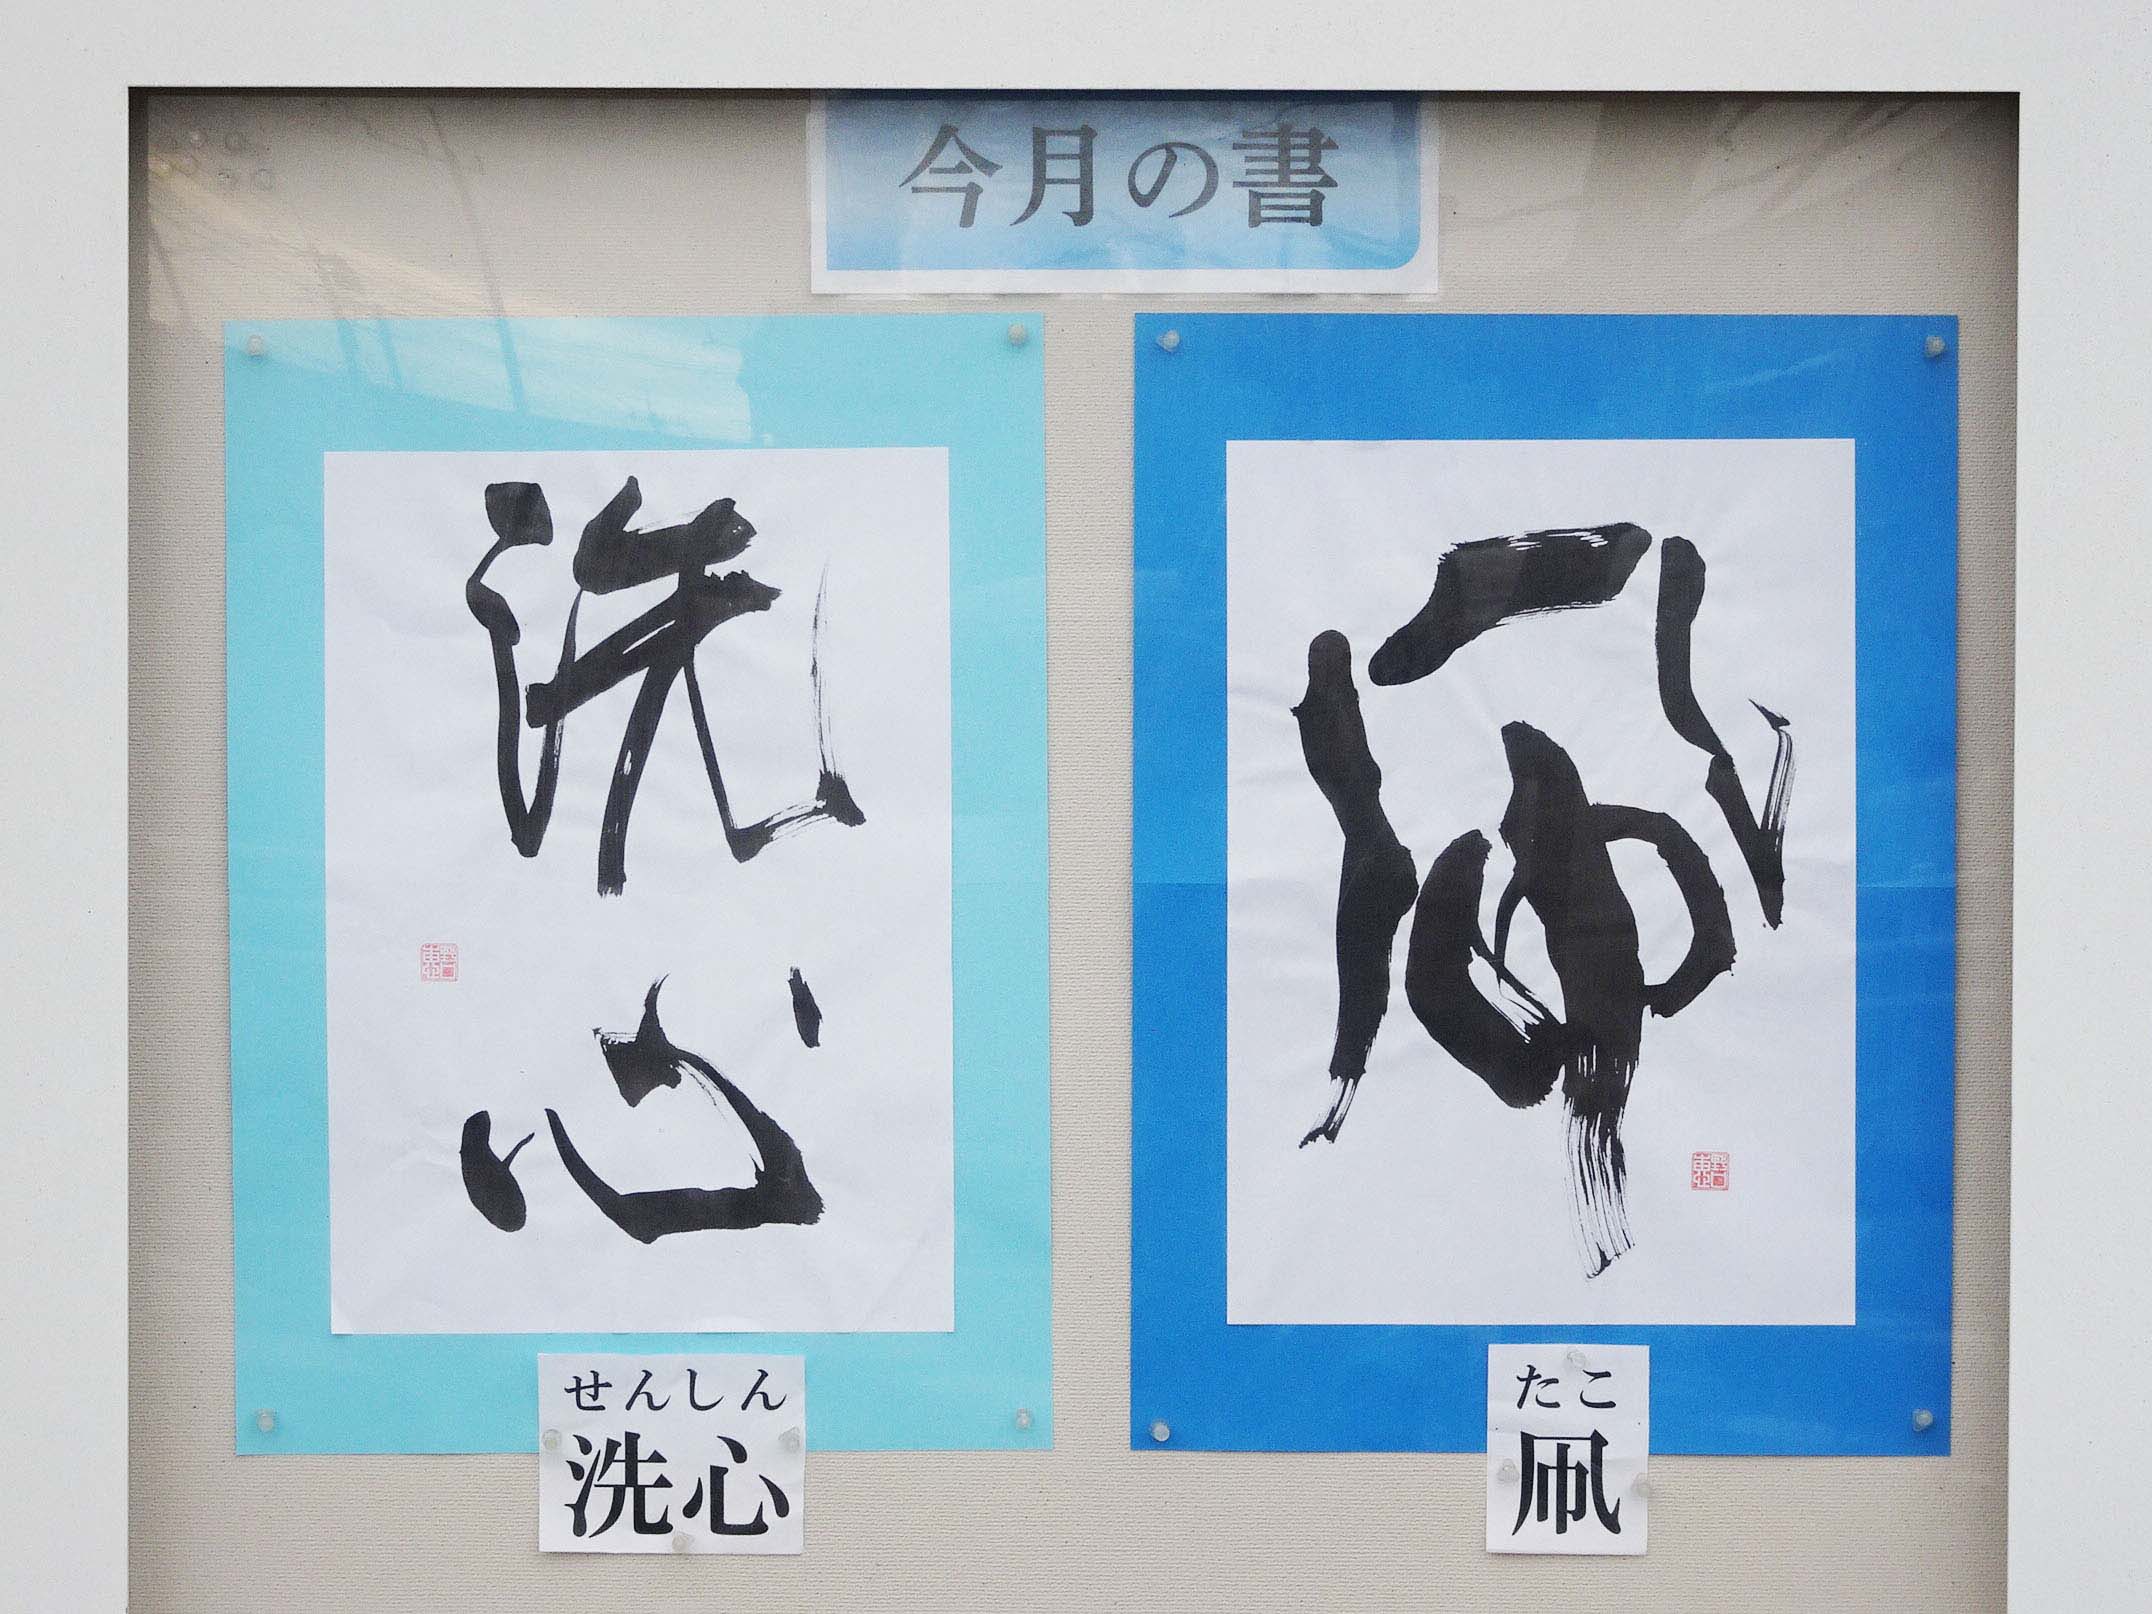 今月の書
洗心
せんしん
洗心
凧
たこ
凧